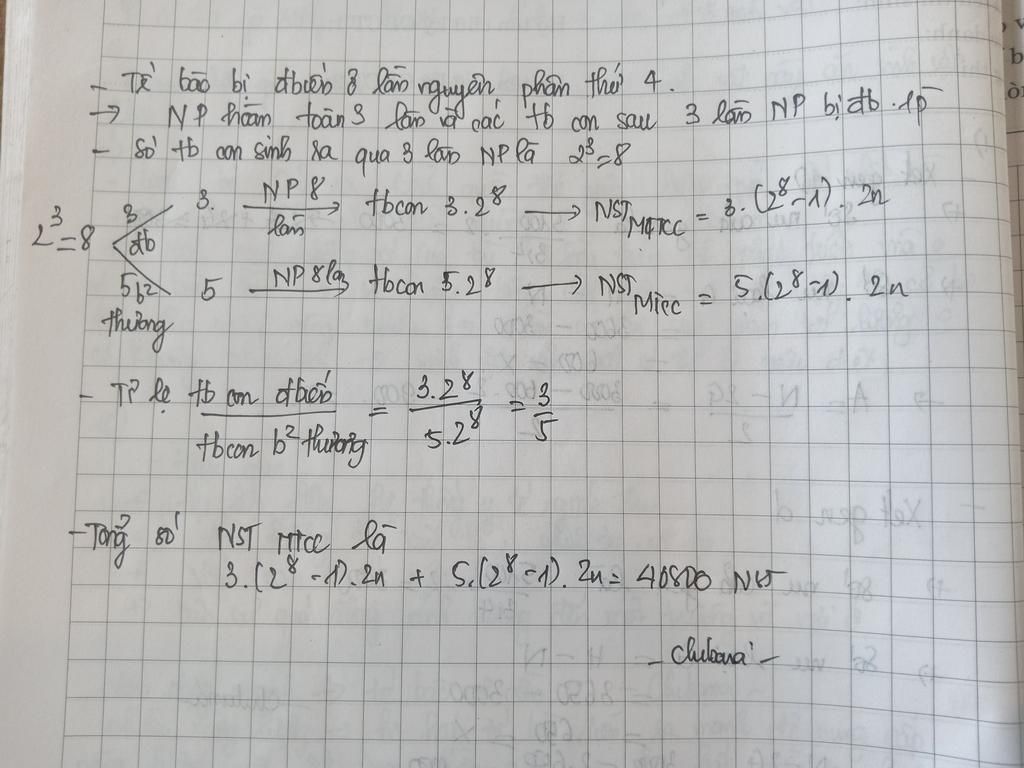 - Tế bào bị đbiến ở lần nguyên phân thứ 4.
→ NP hoàn toàn 3 lần và các tb con sau 3 lần NP bị đb.
- Số tb con sinh ra qua 3 lần NP là 2³=8
2³=8
3 đb 3. NP 8 lần → tbcon 3.2⁸ → NST MTCC = 3.(2⁸-1). 2n
5 b² thường 5 NP 8 lần → tbcon 5.2⁸ → NST MTCC = 5.(2⁸-1). 2n
- Tỉ lệ tb con đbiến / tbcon b² thường = 3.2⁸ / 5.2⁸ = 3/5
- Tổng số NST MTCC là
3.(2⁸-1).2n + 5.(2⁸-1).2n = 40800 NST